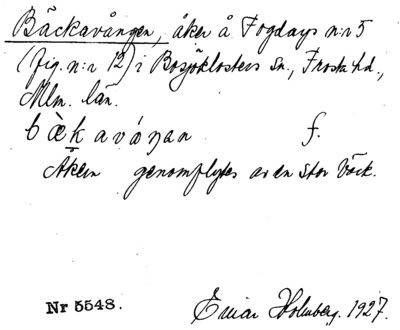 Bäckavången, åker å Fogdays n:r 5
(fig. n:r 12) i Bosjöklosters sn., Frosta hd.,
Mlm. län.
bækaváŋan f.
Åkern genomflytes av en stor bäck.
Nr 5548. Einar Holmberg. 1927.